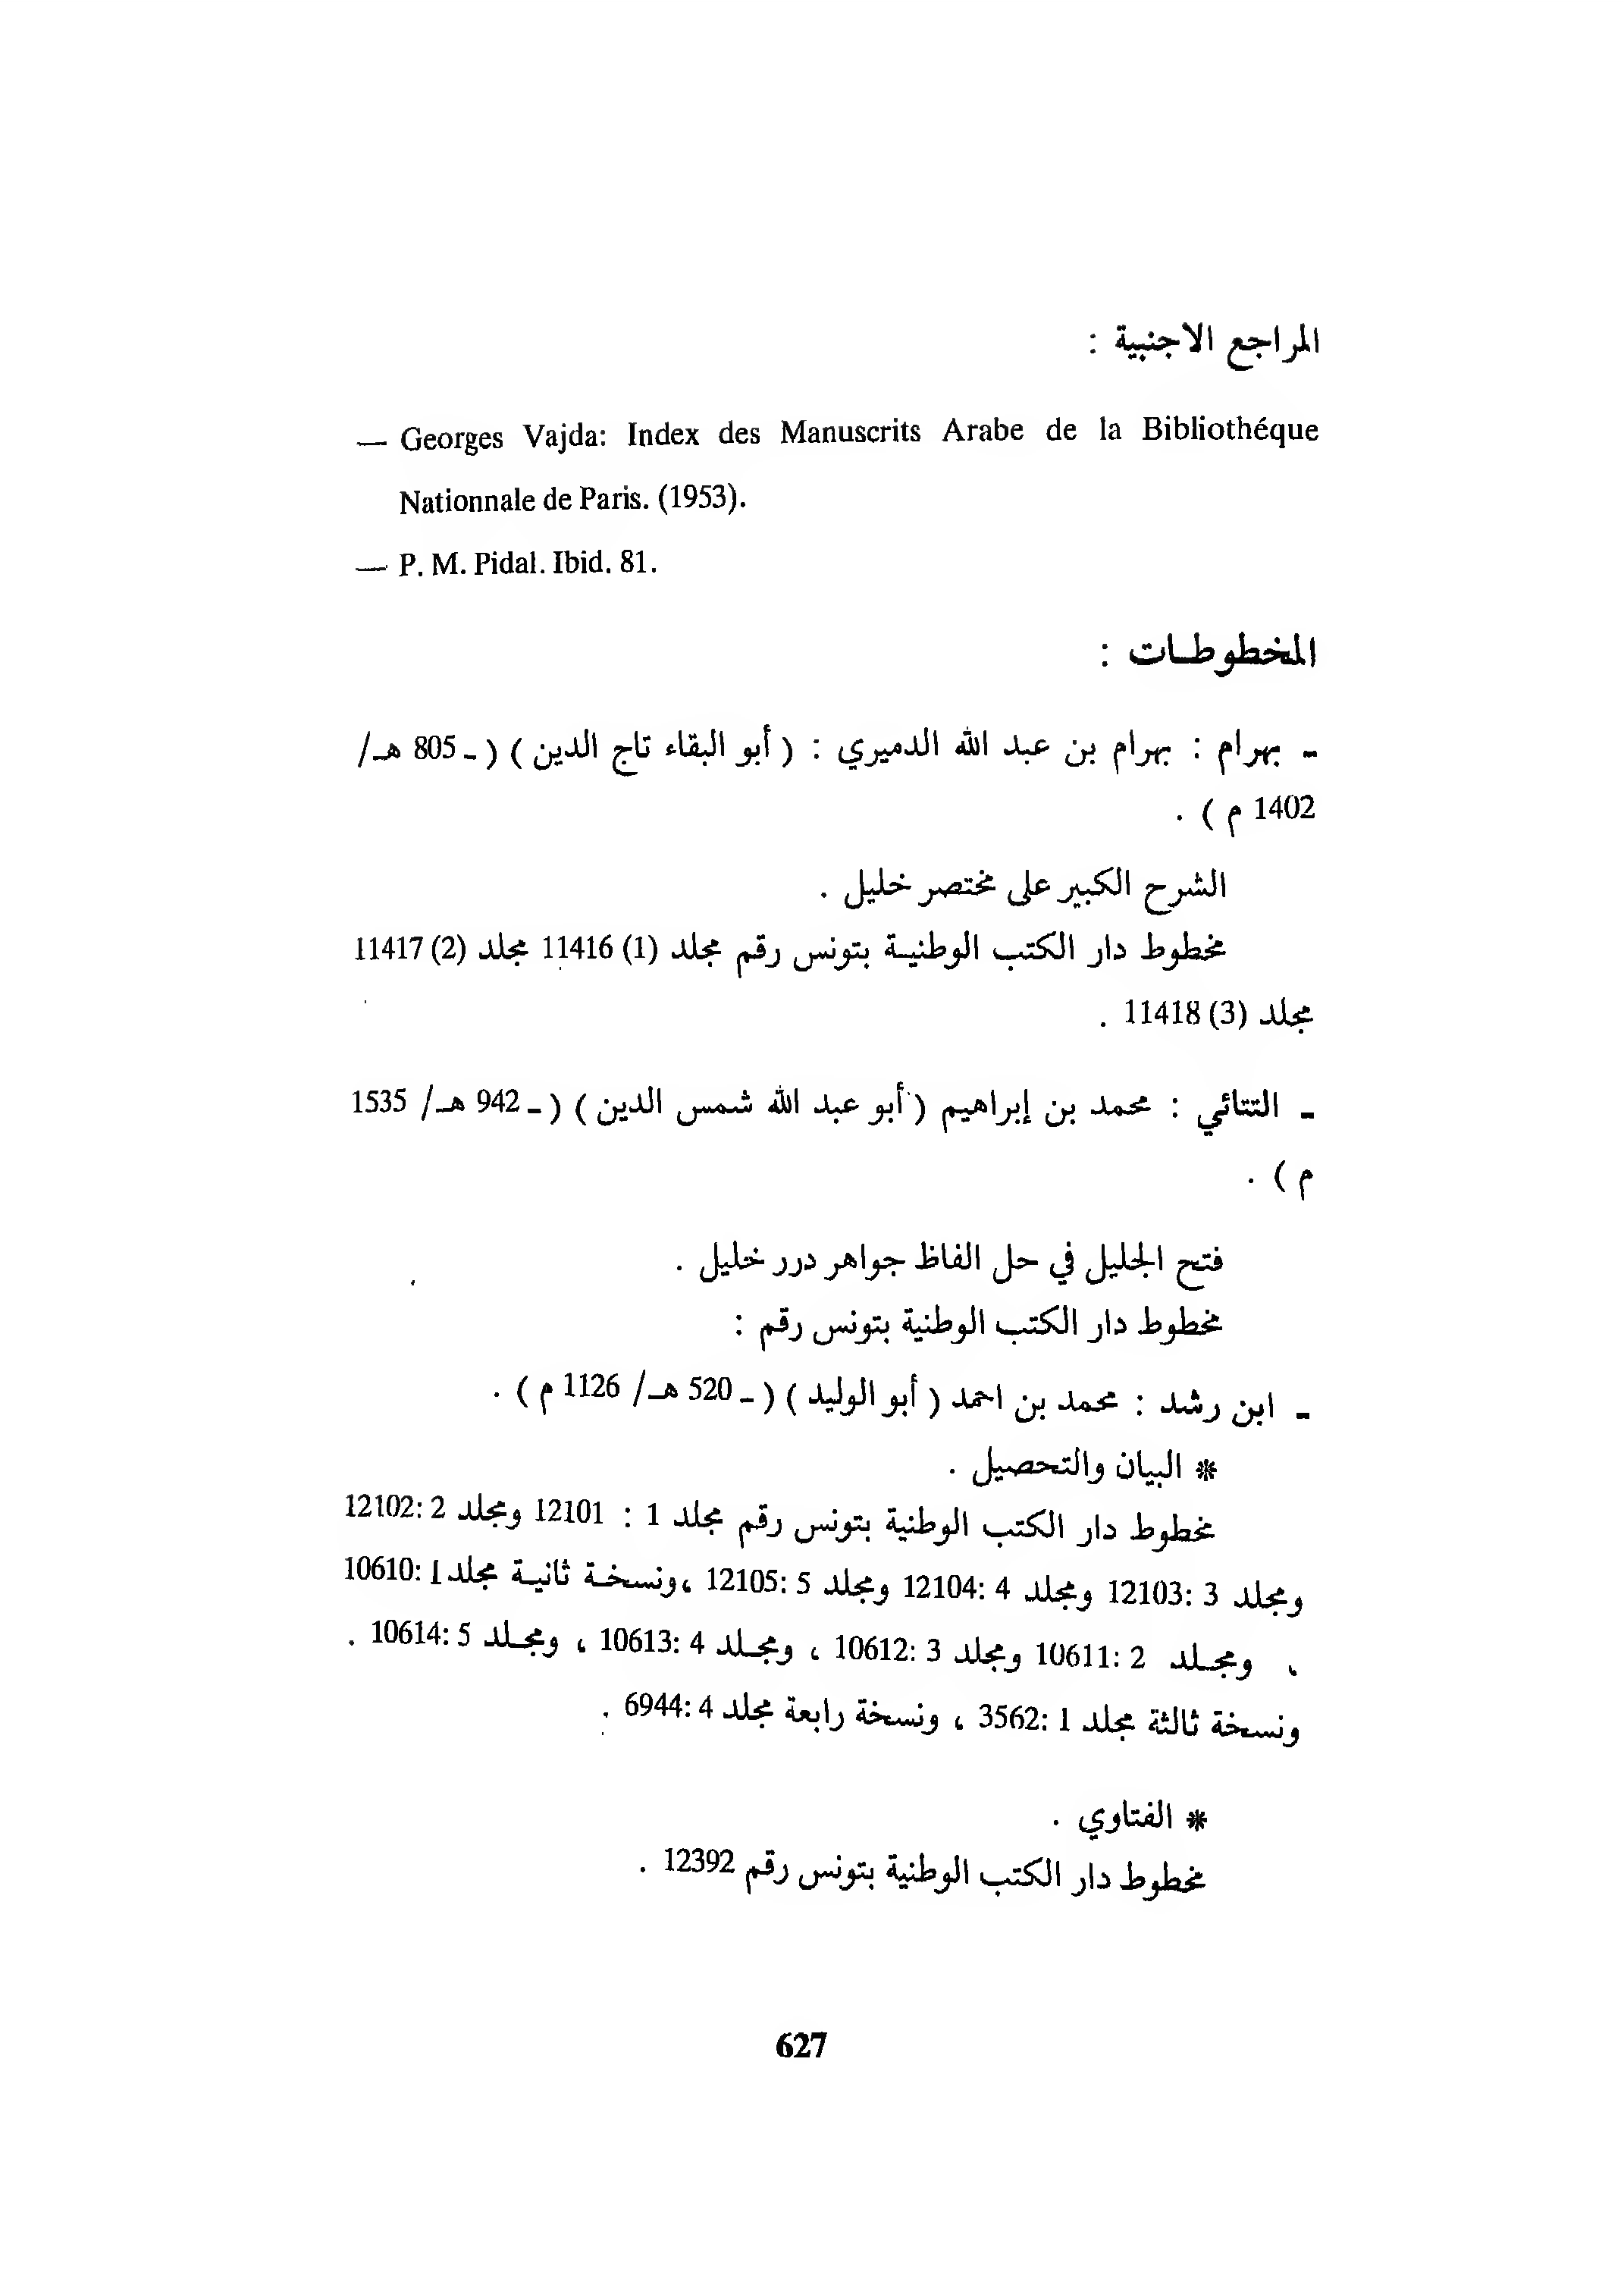 المراجع الاجنبية :
— Georges Vajda: Index des Manuscrits Arabe de la Bibliothéque
Nationnale de Paris. (1953).
— P. M. Pidal. Ibid. 81.
المخطوطات :
- بهرام : بهرام بن عبد الله الدميري : ( أبو البقاء تاج الدين ) ( - 805 هـ/
1402 م ) .
الشرح الكبير على مختصر خليل .
مخطوط دار الكتب الوطنية بتونس رقم مجلد (1) 11416 مجلد (2) 11417
مجلد (3) 11418 .
- التتائي : محمد بن إبراهيم ( أبو عبد الله شمس الدين ) ( - 942 هـ/ 1535
م ) .
فتح الجليل في حل الفاظ جواهر درر خليل .
مخطوط دار الكتب الوطنية بتونس رقم :
- ابن رشد : محمد بن احمد ( أبو الوليد ) ( - 520 هـ/ 1126 م ) .
* البيان والتحصيل .
مخطوط دار الكتب الوطنية بتونس رقم مجلد 1 : 12101 ومجلد 2 :12102
ومجلد 3 :12103 ومجلد 4 :12104 ومجلد 5 :12105 ،ونسخة ثانية مجلد1 :10610
، ومجلد 2 :10611 ومجلد 3 :10612 ، ومجلد 4 :10613 ، ومجلد 5 :10614 .
ونسخة ثالثة مجلد 1 :3562 ، ونسخة رابعة مجلد 4 :6944 .
* الفتاوي .
مخطوط دار الكتب الوطنية بتونس رقم 12392 .
627